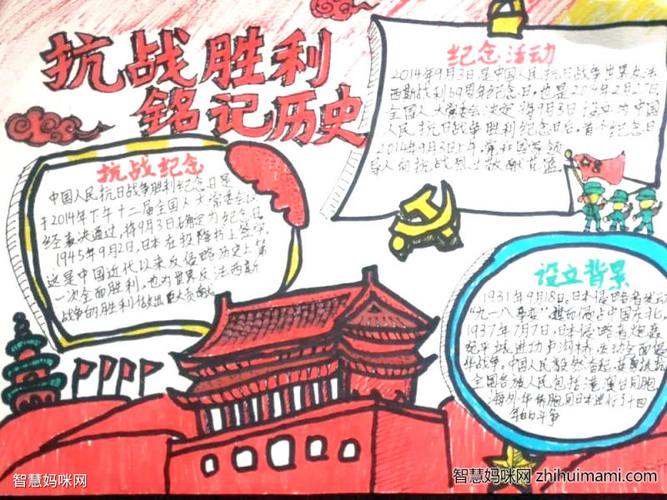 抗战胜利
铭记历史
纪念活动
2014年9月3日是中国人民抗日战争暨世界反法
西斯战利69周年纪念日，也是2014年2月27日
全国人大常委会决定将9月3日设立为中国
人民抗日战争胜利纪念日后，首个纪念日
2014年9月3日上午，党和国家领
导人向抗战烈士敬献花篮
抗战纪念
中国人民抗日战争胜利纪念日是
于2014年下午十二届全国人大常委会以
经表决通过，将9月3日确定为纪念日
1945年9月2日，日本在投降书上签字
这是中国近代以来反侵略历史上第
一次全面胜利，也为世界反法西斯
战争的胜利做出巨大贡献
设立背景
1931年9月18日，日本侵略者发动
"九一八事变"，占中国东北。
1937年7月7日，日本侵略者炮轰
宛平城进攻卢沟桥，发动全面侵
华战争。中国人民毅然奋起，
全国各族人民包括港澳台同胞
海外华侨胞同日本进行了十四
年的斗争
智慧妈咪网
智慧妈咪网 zhihuimami.com